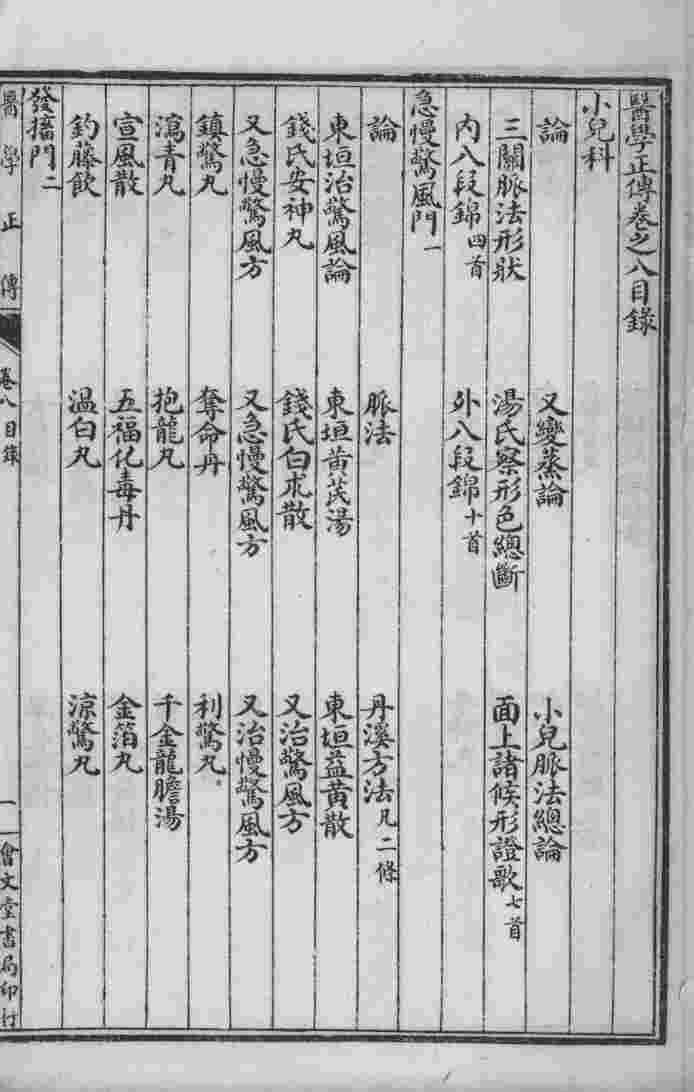 醫學正傳卷之八目錄
小兒科
論　又變蒸論　小兒脈法總論
三關脈法形狀　湯氏察形色總斷　面上諸候形證歌七首
內八段錦四首　外八段錦十首
急慢驚風門一
論　脈法　丹溪方法凡二條
東垣治驚風論　東垣黃芪湯　東垣益黃散
錢氏安神丸　錢氏白朮散　又治驚風方
又急慢驚風方　又急慢驚風方　又治慢驚風方
鎮驚丸　奪命丹　利驚丸
瀉青丸　抱龍丸　千金龍膽湯
宣風散　五福化毒丹　金箔丸
釣藤飲　溫白丸　涼驚丸
發搐門二
醫學正傳　卷八目錄　一　會文堂書局印行